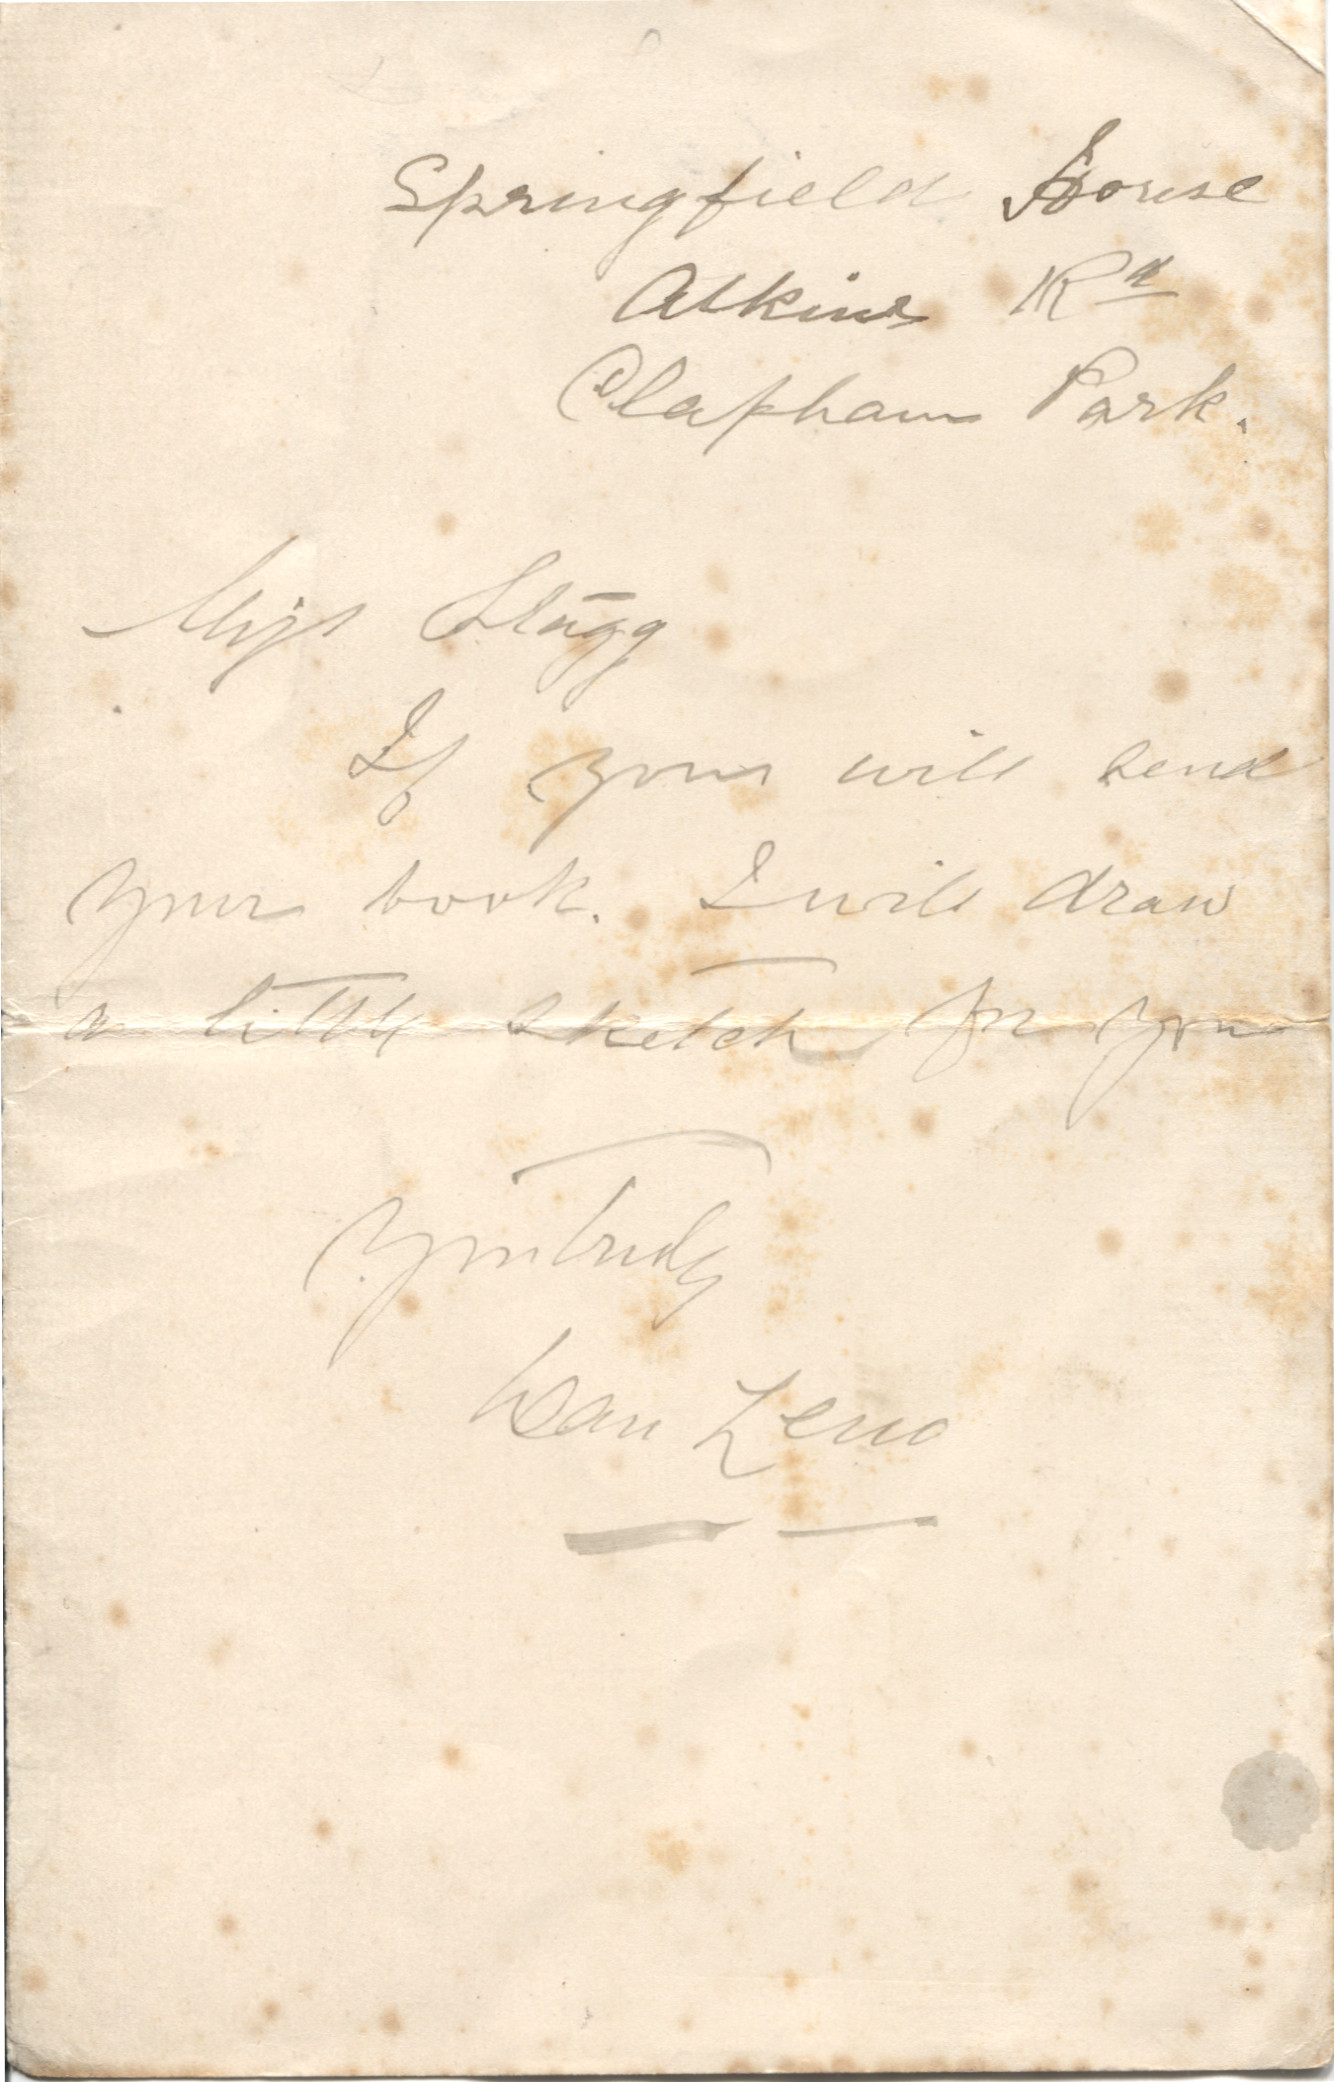 Springfield House
Atkins Rd
Clapham Park.
Miss Stagg
If you will send
your book. I will draw
a little sketch for you
Yours truly
Dan Leno